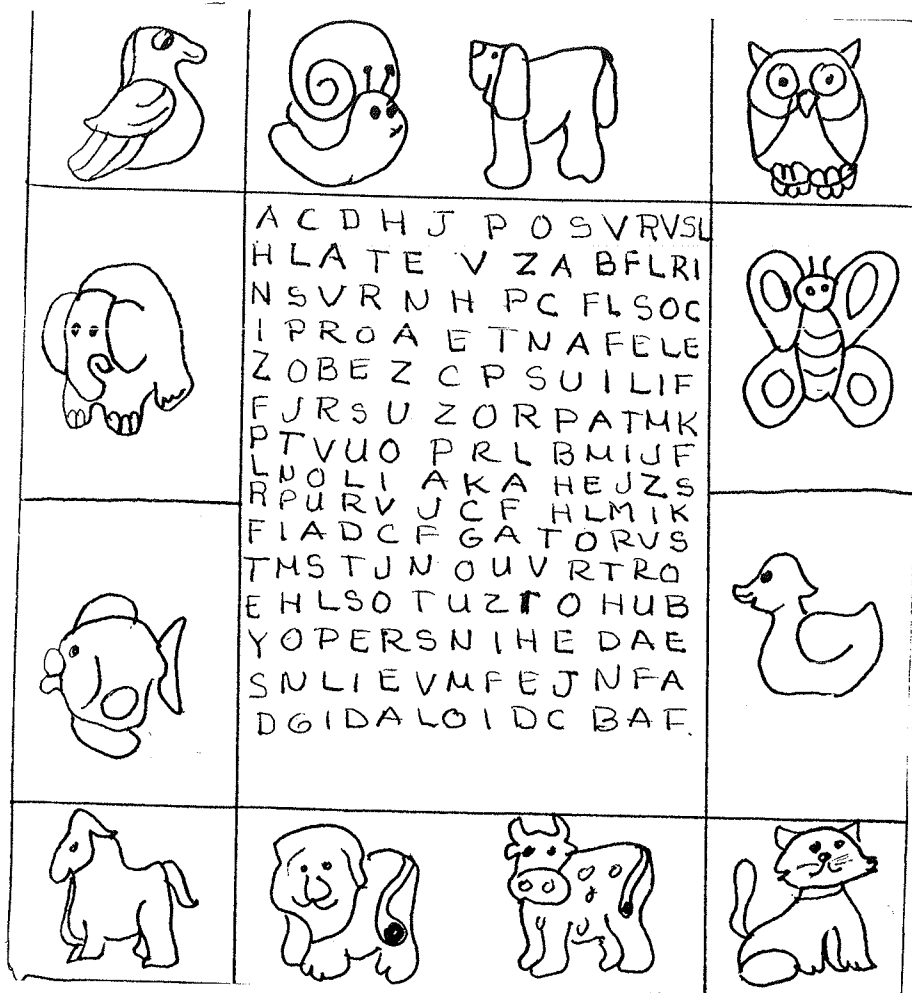 A C D H J P O S V R V S L
H L A T E V Z A B F L R I
N S V R N H P C F L S O C
I P R O A E T N A F E L E
Z O B E Z C P S U I L I F
F J R S U Z O R P A T M K
P T V U O P R L B M I J F
L N O L I A K A H E J Z S
R P U R V J C F H L M I K
F I A D C F G A T O R V S
T M S T J N O U V R T R O
E H L S O T U Z T O H U B
Y O P E R S N I H E D A E
S N L I E V M F E J N F A
D G I D A L O I D C B A F.